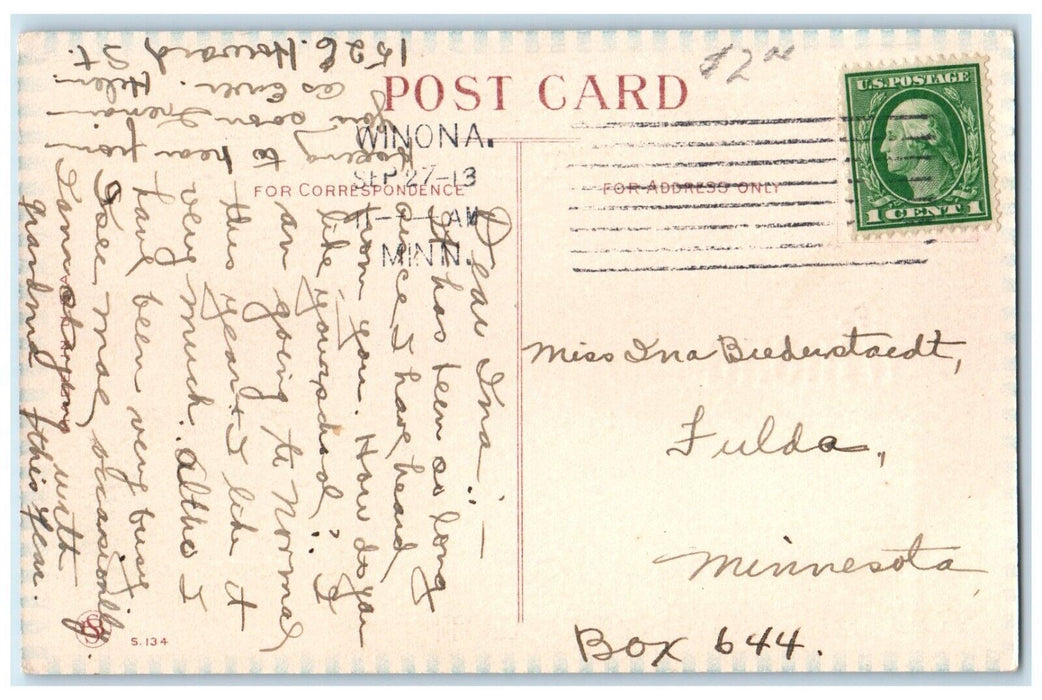 POST CARD
$2.00
U.S. POSTAGE
1 CENT 1
WINONA.
SEP 27-13
AM
MINN.
FOR CORRESPONDENCE
FOR ADDRESS ONLY
Dear Ina: —
It has been so long
since I have heard
from you. How do you
like your school? I
am going to Normal
this year & I like it
very much. altho I
have been very busy.
I see Mae occasionally.
I am staying with
grandma this year.
Hoping to hear from
you soon I remain
as Ever. Helen
1526 Howard St.
Miss Ina Biederstaedt,
Fulda,
Minnesota
Box 644.
S.134